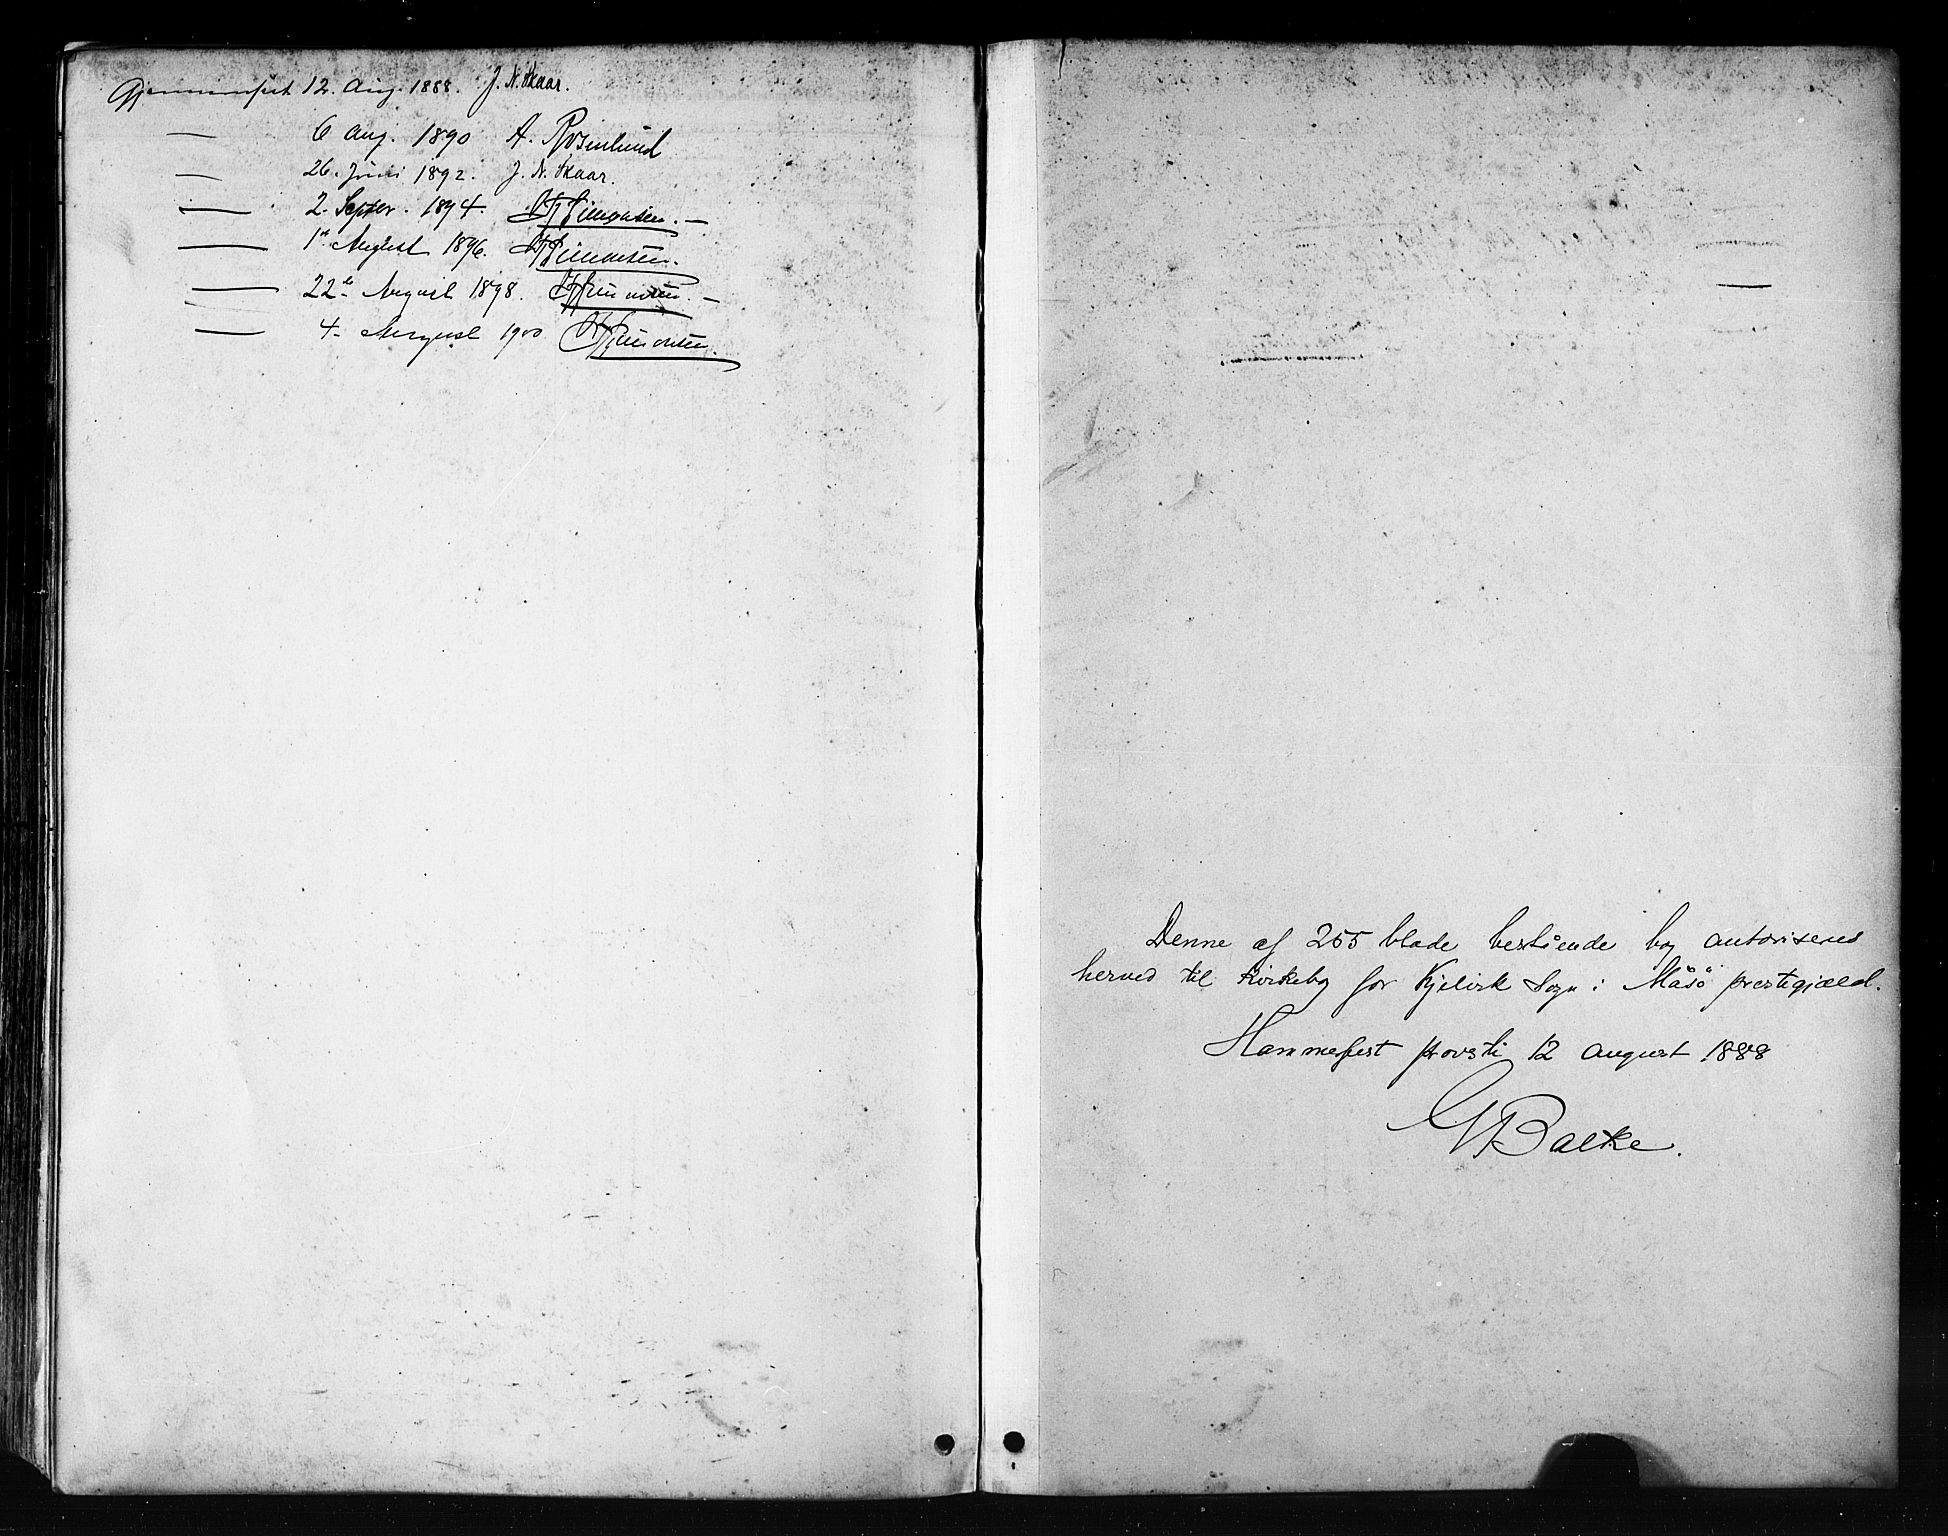 Gjennemseet 12. Aug. 1888. J. N. Skaar.
— 6 Aug. 1890 A. Rosenlund
— 26. Juni 1892. J. N. Skaar.
— 2. Septbr. 1894. Simonsen. —
— 1st August 1896. Simonsen.
— 22de August 1898. Simonsen. —
— 4. August 1900 Simonsen.
Denne af 255 blade bestående bog autoriseres
herved til kirkebog for Kjelvik Sogn i Måsö prestegjæld.
Hammerfest provsti 12 august 1888
G Balke.